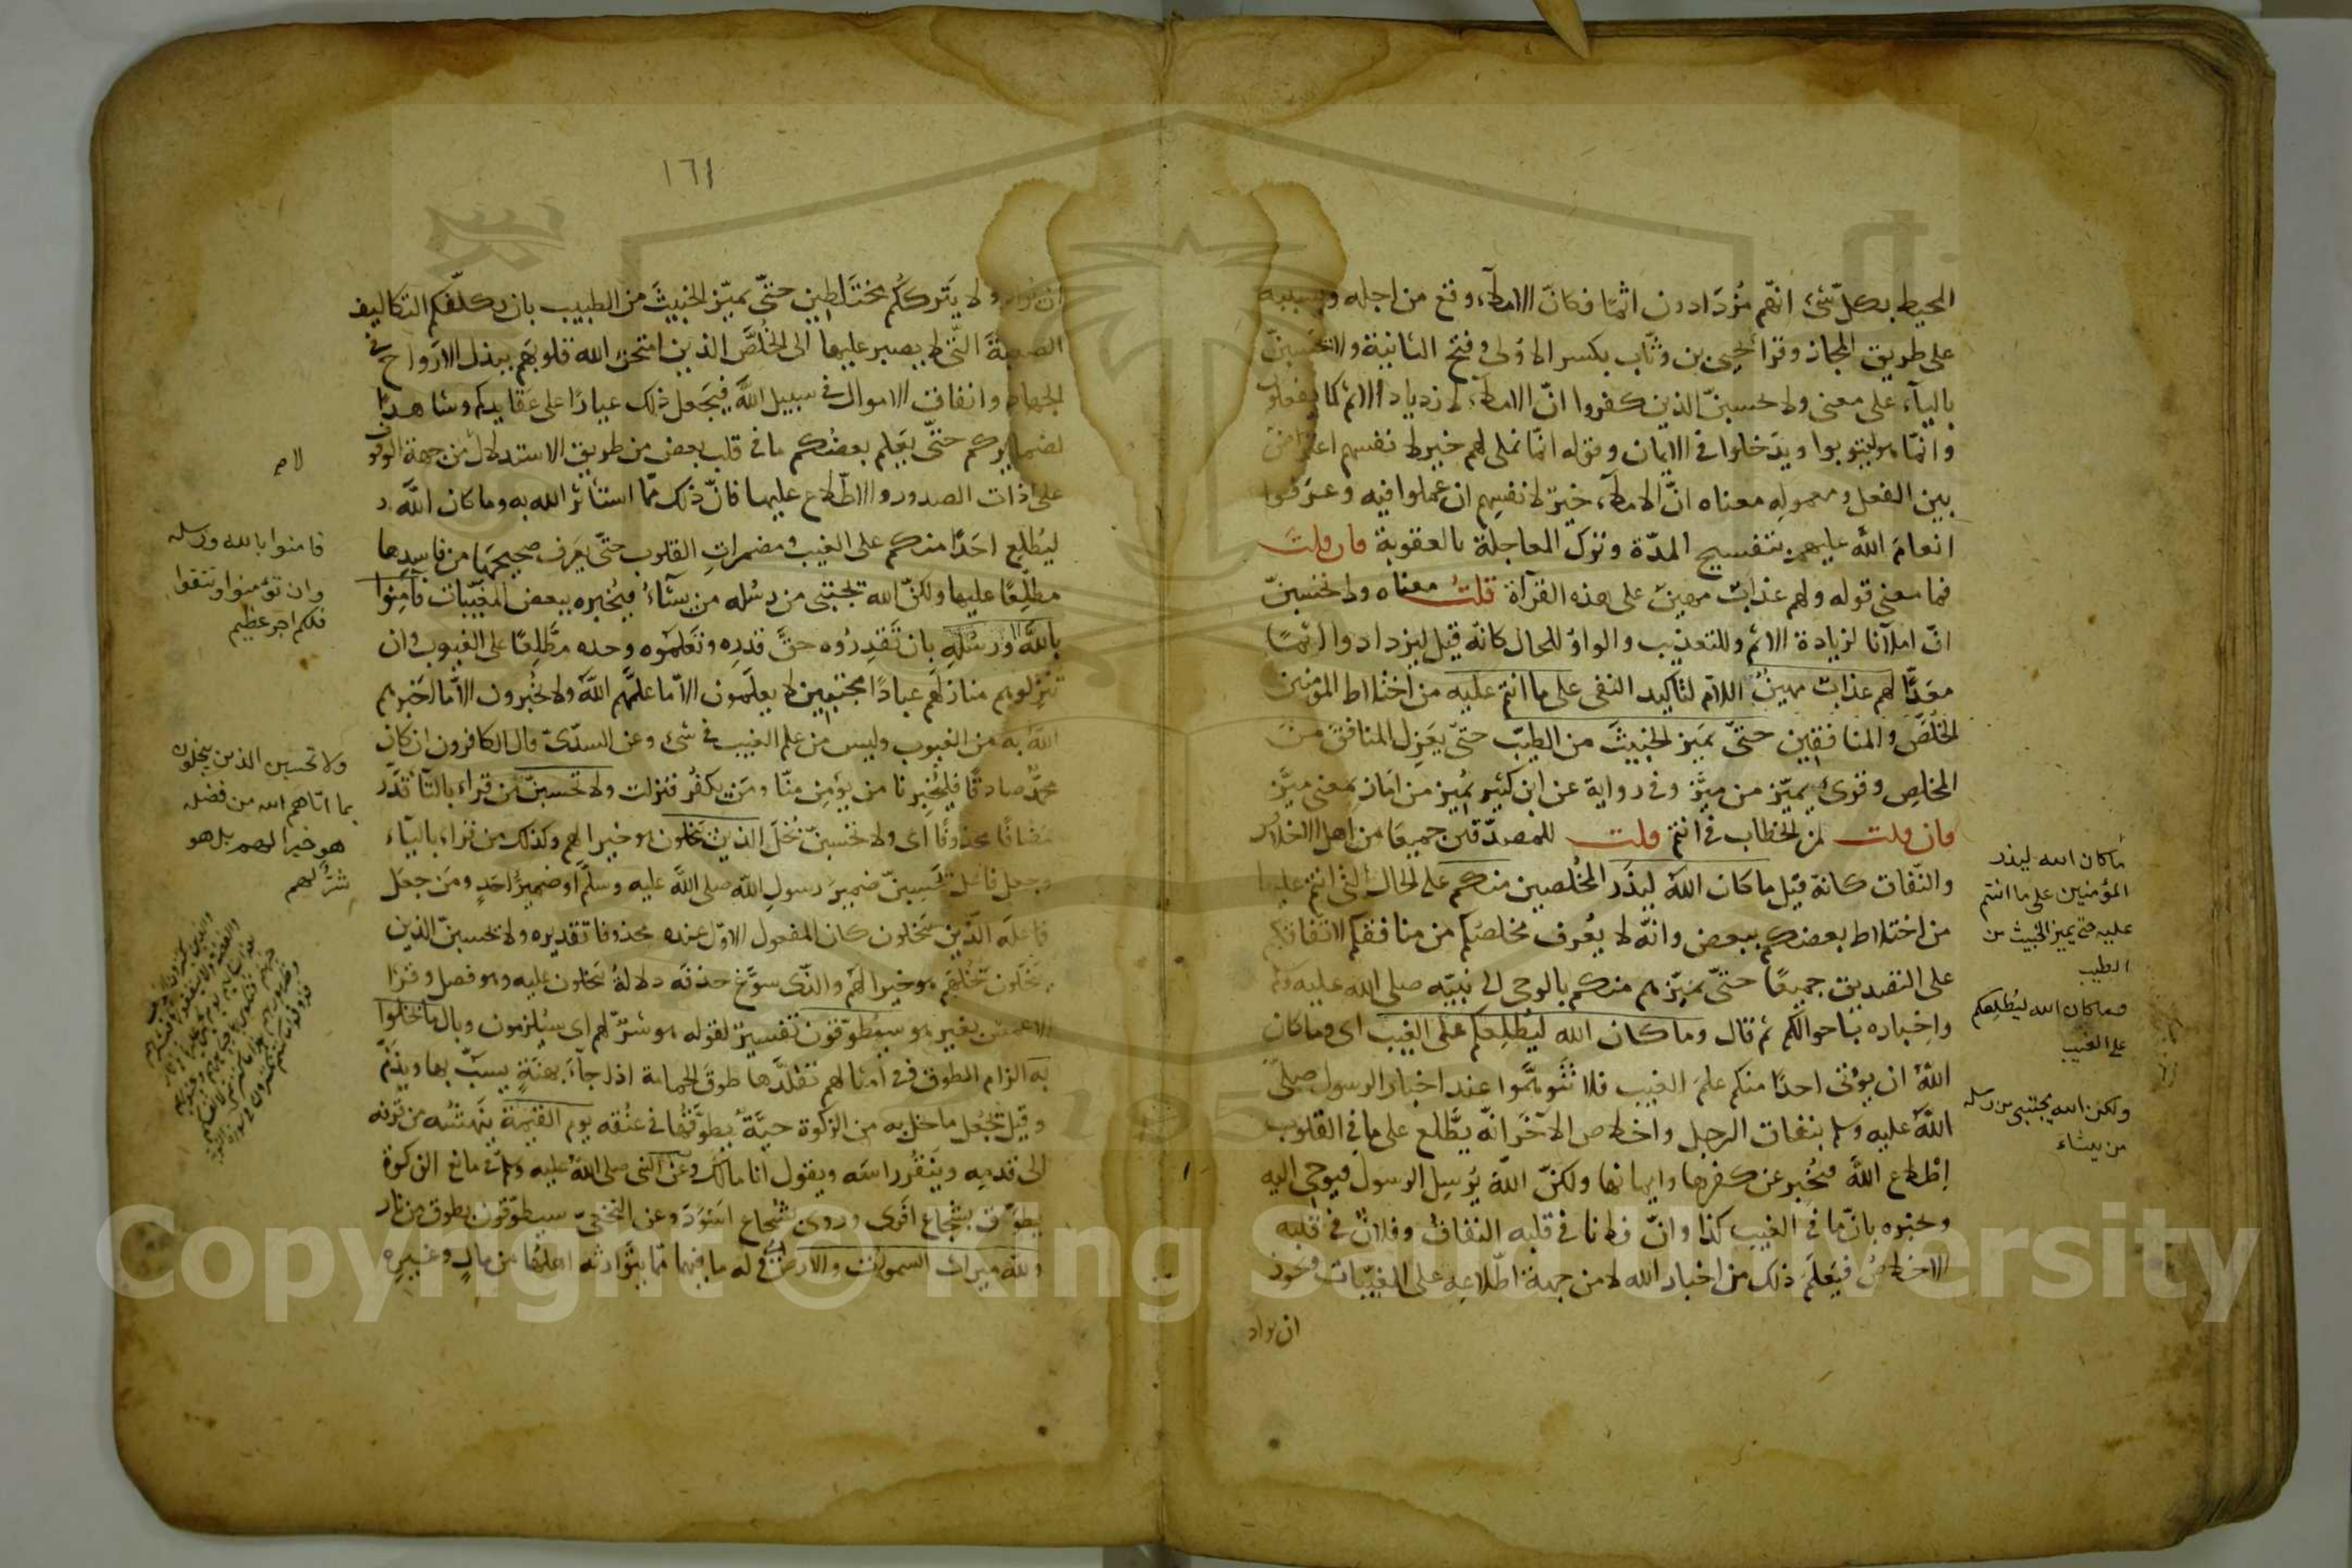 المحيط بكل شئ انهم مزدادون اثما فكان الاملآء وقع من اجله وبسببه
على طريق المجاز وقرا يحيى بن وثّاب بكسر الاولى وفتح الثانية ولا يحسبنّ
باليآء على معنى ولا يحسبنّ الذين كفروا انّ الاملآء لازدياد الاثم كما يفعلون
وانّما هو ليتوبوا ويدخلوا في الايمان وقوله انّما نملى لهم خير لانفسهم اعتراض
بين الفعل ومعموله معناه انّ الاملآء خير لانفسهم ان عملوا فيه وعرفوا
انعام الله عليهم بتفسيح المدّة وترك المعاجلة بالعقوبة فان قلت
فما معنى قوله ولهم عذاب مهين على هذه القرآة قلت معناه ولا تحسبنّ
انّ املآنا لزيادة الاثم وللتعذيب والواو للحال كانّه قيل ليزدادوا اثما
معدّا لهم عذاب مهين اللام لتاكيد النفى على ما انتم عليه من اختلاط المؤمنين
الخلّص والمنافقين حتّى يميز الخبيث من الطيب حتّى يعزل المنافق من
المخلص وقرئ يميّز من ميّز وفى رواية عن ابن كثير يُميز من اماز بمعنى ميّز
فان قلت لمن الخطاب في انتم قلت للمصدّقين جميعا من اهل الاخلاص
والنّفاق كانه قيل ما كان الله ليذر المخلصين منكم على الحال التى انتم عليها
من اختلاط بعضكم ببعض وانّه لا يُعرف مخلصكم من منافقكم لاتفاقكم
على التصديق جميعا حتّى يميّزهم منكم بالوحى الى نبيّه صلى الله عليه وسلم
واخباره باحوالكم ثم قال وما كان الله ليُطلعكم على الغيب اى وما كان
الله ان يؤتى احدا منكم علم الغيب فلا تتوهّموا عند اخبار الرسول صلى
الله عليه وسلم بنفاق الرجل واخلاص الآخر انّه يطّلع على ما في القلوب
اطلاع الله فيُخبر عن كفرها وايمانها ولكنّ الله يُرسل الرسول فيوحى اليه
ويخبره بانّ ما في الغيب كذا وانّ فلانا في قلبه النفاق وفلان في قلبه
الاخلاص فيعلم ذلك من اخبار الله لا من جهة اطّلاعه على المغيّبات ويجوز
ان يراد
ما كان الله ليذر
المؤمنين على ما انتم
عليه حتى يميز الخبيث من
الطيب
وما كان الله ليُطلعكم
على الغيب
ولكن الله يجتبى من رسله
من يشاء
١٦١
ان يراد ولا يتركُكم مختلطين حتّى يميّز الخبيث من الطيب بان يكلّفكم التكاليف
الصعبة التّى لا يصبر عليها الى الخُلّص الذين امتحن الله قلوبهم ببذل الارواح في
الجهاد وانفاق الاموال في سبيل الله فيجعل ذلك عيارا على عقايدكم وشاهدا
لضمايركم حتّى يعلم بعضكم ما في قلب بعض من طريق الاستدلال من جهة الوقوف
على ذات الصدور والاطّلاع عليها فانّ ذلك ممّا استاثر الله به وما كان الله
ليُطلع احدا منكم على الغيب ومضمرات القلوب حتّى يعرف صحيحها من فاسدها
مطّلعا عليها ولكنّ الله يجتبى من رسُله من يشآء فيُخبره ببعض المغيّبات فآمِنوا
بالله ورسُله بان تقدروه حقّ قدره وتعلموه وحده مطّلعا على الغيوب وان
تنزلوهم منازلهم عبادا مجتبين لا يعلمون الاّ ما علّمهم الله ولا يخبرون الاّ بما اخبرهم
الله به من الغيوب وليس من علم الغيب في شئ وعن السدّىّ قال الكافرون ان كان
محمّد صادقا فليُخبرنا من يؤمن منّا ومن يكفُر فنزلت ولا تحسبنّ من قراء بالتآء قدّر
مضافا محذوفا اى ولا تحسبنّ بُخل الذين يبخلون هو خيرا لهم وكذلك من قراء باليآء
وجعل فاعل يحسبنّ ضمير رسول الله صلى الله عليه وسلّم او ضمير احد ومن جعل
فاعله الّذين يبخلون كان المفعول الاوّل عنده محذوفا تقديره ولا يحسبنّ الذين
يبخلون بُخلهم هو خيرا لهم والّذى سوّغ حذفه دلالة يبخلون عليه وهو فصل وقرا
الاعمش بغير هو سيُطوّقون تفسير لقوله هو شرّ لهم اى سيُلزمون وبال ما بخلوا
به الزام الطوق وفى امثالهم تقلّدها طوق الحمامة اذا جآء بهنَةٍ يسبّ بها ويذمّ
وقيل يجعل ما بخل به من الزكوة حيّة يطوّقُها في عنُقه يوم القيمة ينهشُه من قرنه
الى قدمه وينقُر راسه ويقول انا مالك وعن النبى صلى الله عليه وسلم في مانع الزكوة
يطوّق بشُجاع اقرع وروى بشُجاع اسود وعن النخعىّ سيطوّقون بطوق من نار
ولله ميراث السموات والارض اى له ما فيهما ممّا يتوارثه اهلهُما من مالٍ وغيره
فامنوا بالله ورسله
وان تؤمنوا وتتقوا
فلكم اجر عظيم
ولا تحسبن الذين يبخلون
بما اتاهم الله من فضله
هو خيرا لهم بل هو
شرّ لهم
Copyright © King Saud University